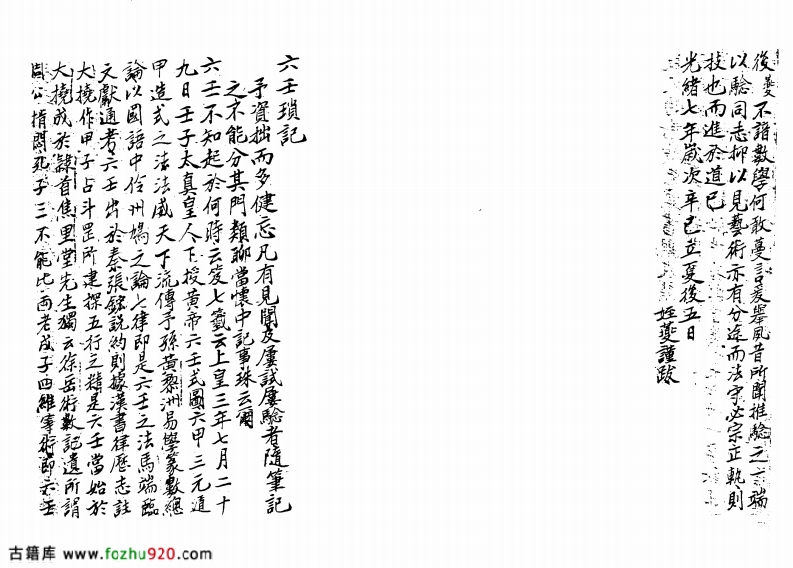 後夔不諳數學何敢蔓言爰舉風昔所聞推驗之言端
以驗同志抑以見藝術亦有分途而法守必宗正軌則
技也而進於道已
光緒七年歲次辛巳立夏後五日
姪夔謹跋
六壬瑣記
予資拙而多健忘凡有見聞及屢試屢驗者隨筆記
之不能分其門類聊當懷中記事珠云爾
六壬不知起於何時云笈七籤云上皇三年七月二十
九日壬子太真皇人下授黃帝六壬式圖六甲三元遁
甲造式之法法威天下流傳子孫黃黎洲易學象數總
論以國語中伶州鳩之論七律即是六壬之法馬端臨
文獻通考六壬出於秦張銘説約則據漢書律歷志註
大撓作甲子占斗罡所建探五行之精是六壬當始於
大撓成於隸首焦里堂先生獨云徐岳術數記遺所謂
周公揹悶死子三不能比西老成子四維事術即六壬
古籍库 www.fozhu920.com